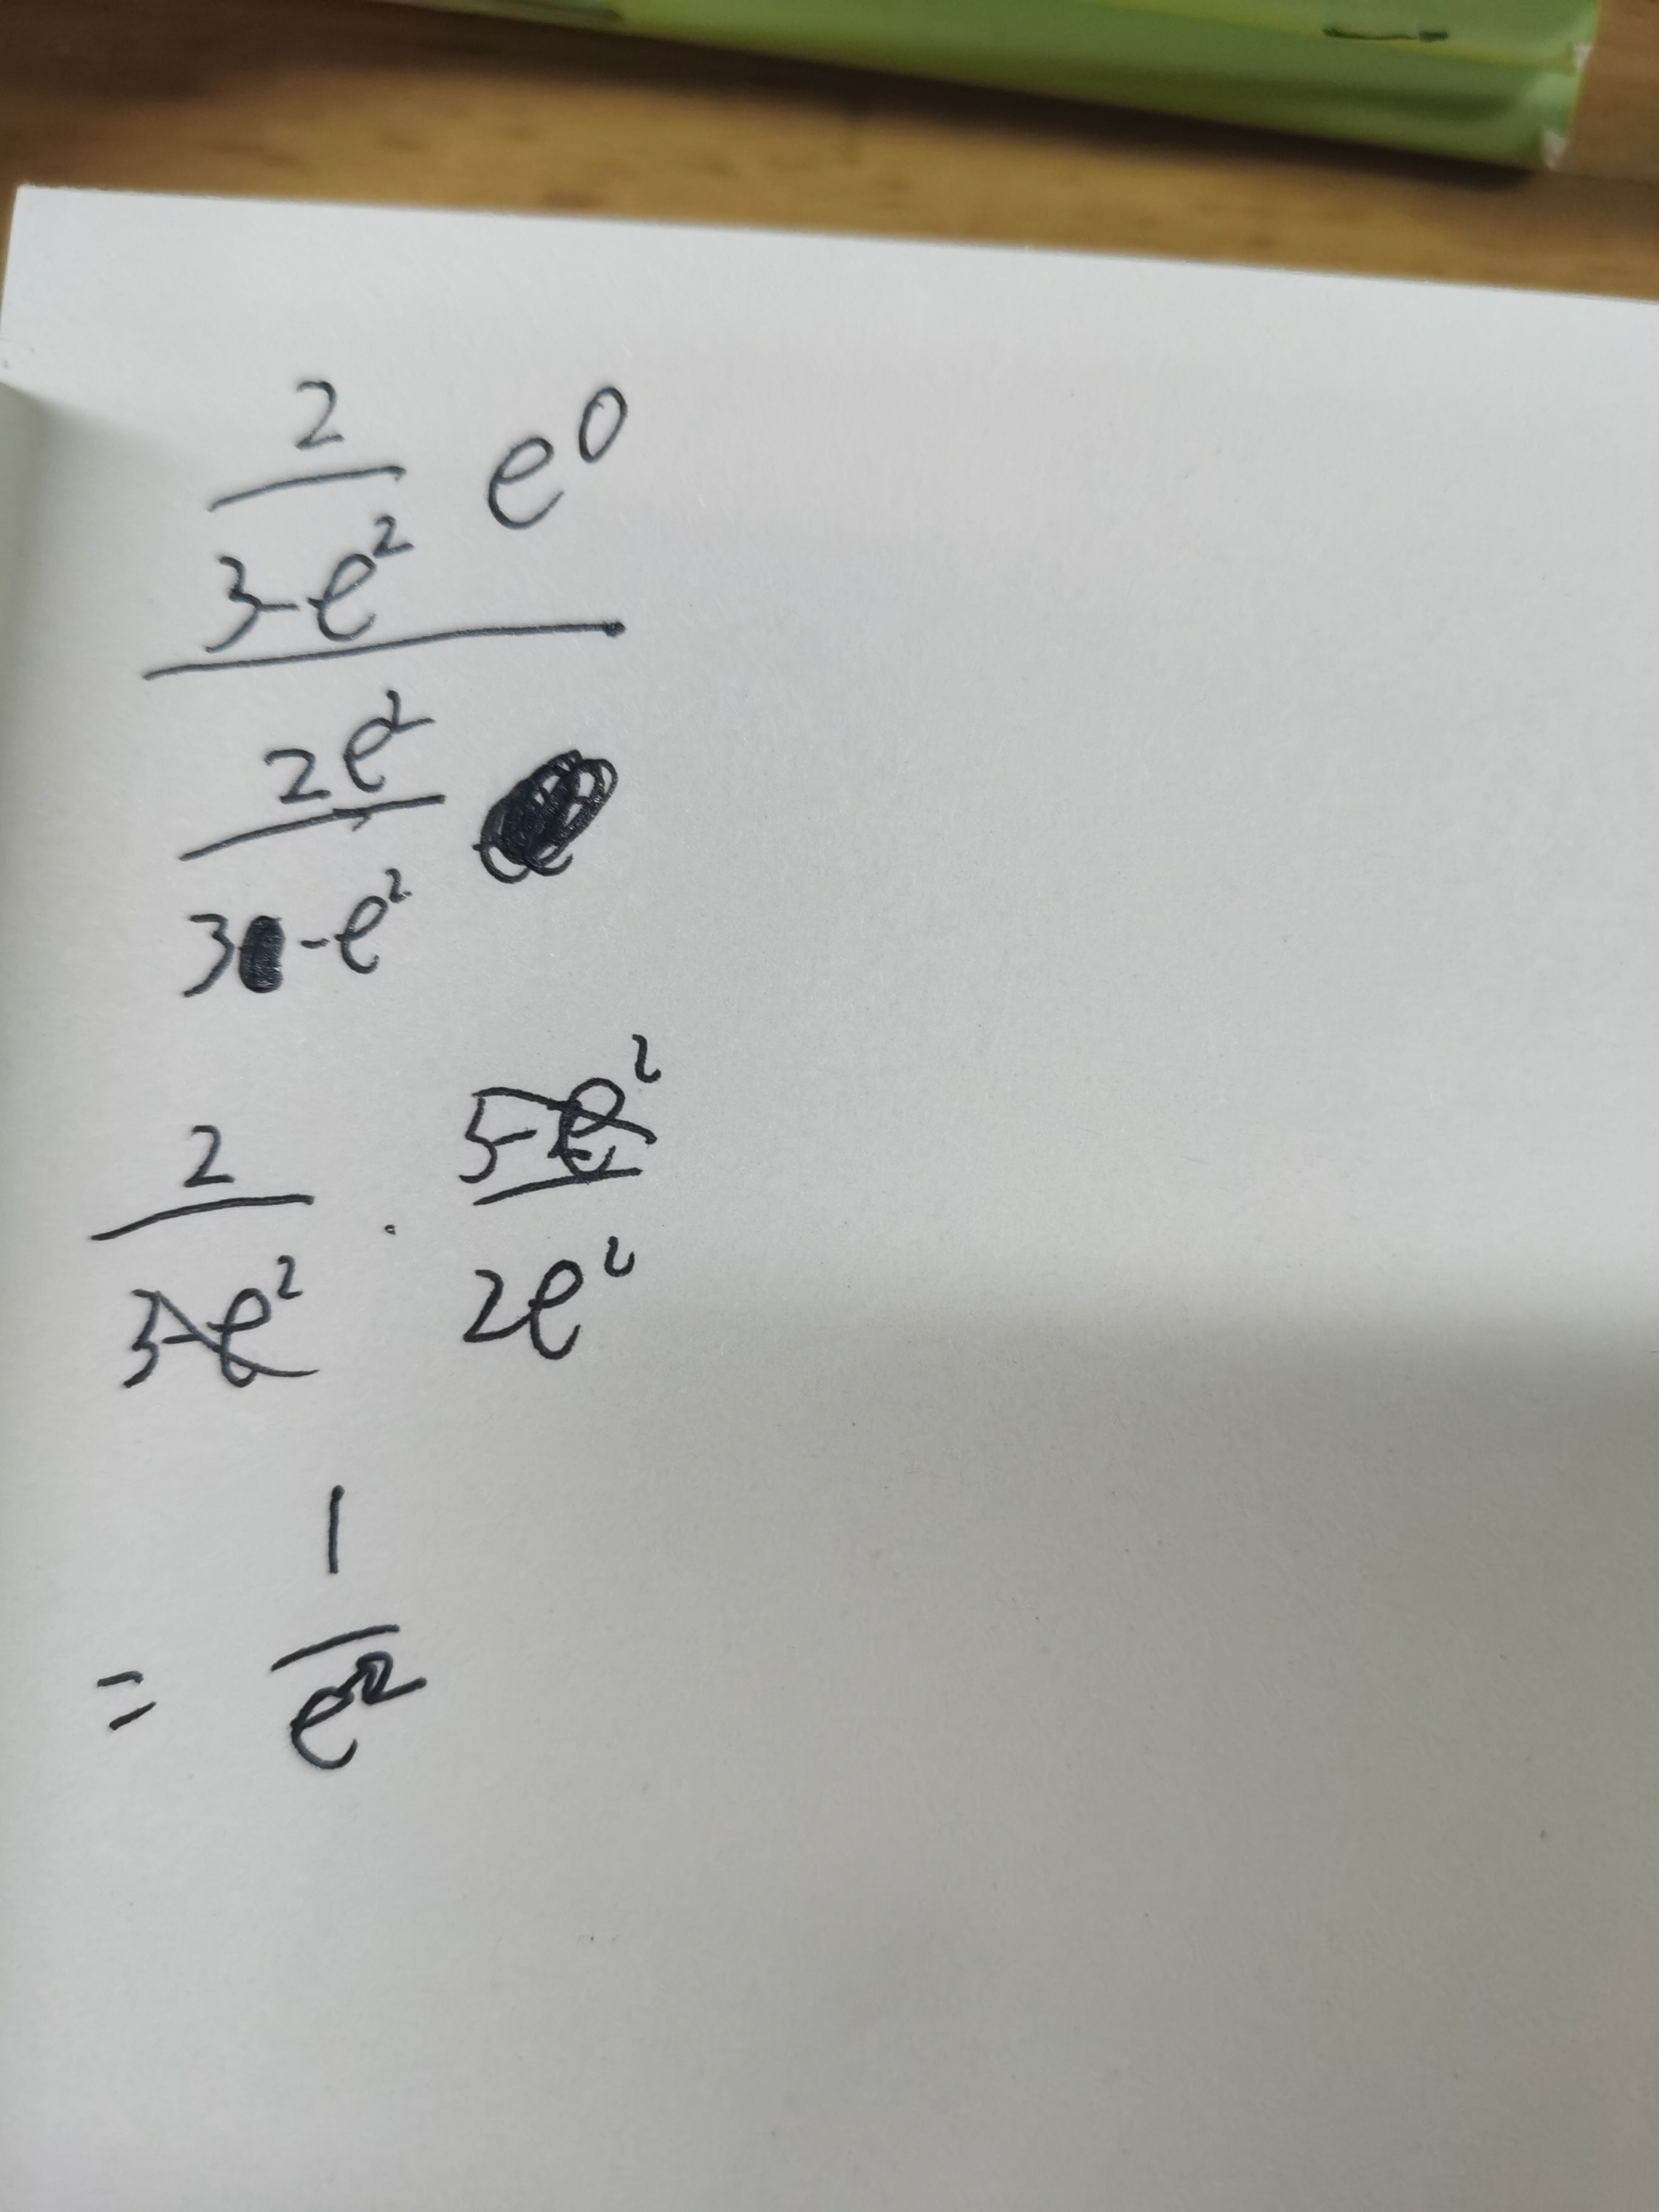 2
3-e² e⁰
2e²
3 -e²
2 · 3-e²
3-e² 2e²
1
= e²